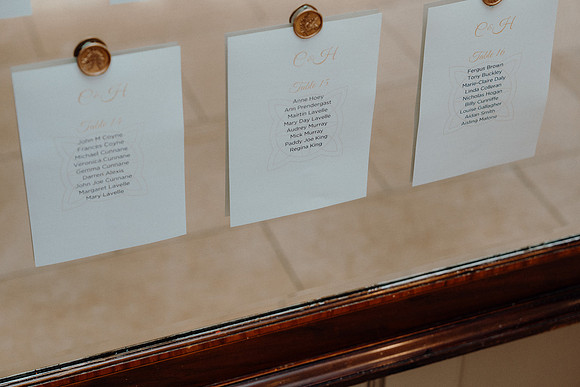 C & H
Table 14
John M Coyne
Frances Coyne
Michael Cunnane
Veronica Cunnane
Gemma Cunnane
Darren Alexis
John Joe Cunnane
Margaret Lavelle
Mary Lavelle
C & H
Table 15
Anne Hoey
Ann Prendergast
Mairtin Lavelle
Mary Day Lavelle
Audrey Murray
Mick Murray
Paddy Joe King
Regina King
C & H
Table 16
Fergus Brown
Tony Buckley
Marie-Claire Daly
Linda Colleran
Nicholas Hogan
Billy Cunniffe
Louise Gallagher
Aidan Smith
Aisling Malone